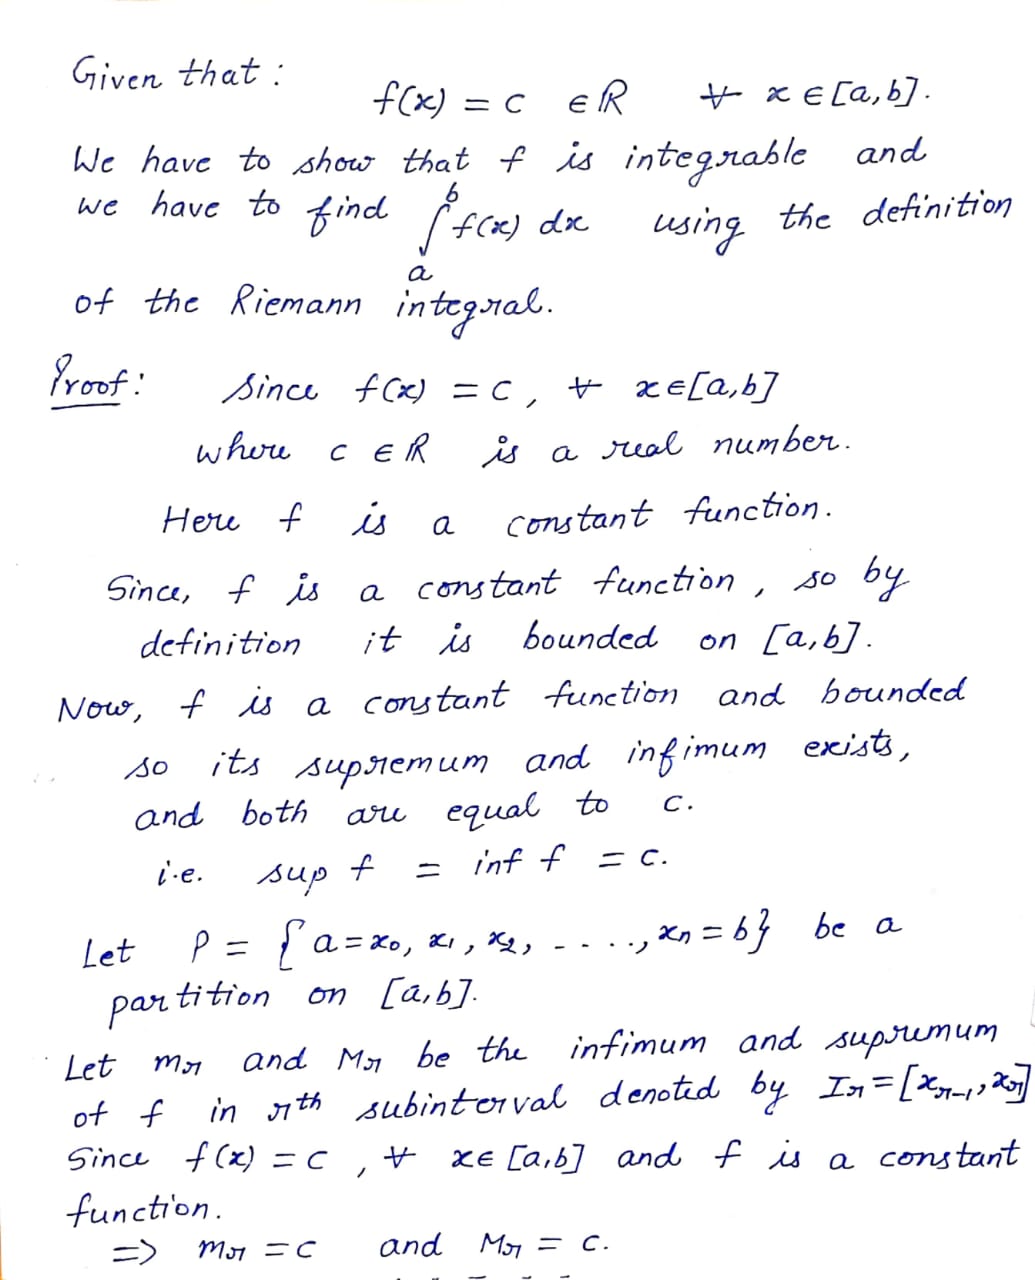 Given that :
f(x) = c ∈ ℝ ∀ x ∈ [a,b].
We have to show that f is integrable and
we have to find ∫_a^b f(x) dx using the definition
of the Riemann integral.
Proof: Since f(x) = c, ∀ x ∈ [a,b]
where c ∈ ℝ is a real number.
Here f is a constant function.
Since, f is a constant function, so by
definition it is bounded on [a,b].
Now, f is a constant function and bounded
so its supremum and infimum exists,
and both are equal to c.
i.e. sup f = inf f = c.
Let P = {a = x₀, x₁, x₂, - - . . ., xₙ = b} be a
partition on [a,b].
Let mᵣ and Mᵣ be the infimum and supremum
of f in rth subinterval denoted by Iᵣ = [xᵣ₋₁, xᵣ]
Since f(x) = c, ∀ x ∈ [a,b] and f is a constant
function.
=> mᵣ = c and Mᵣ = c.